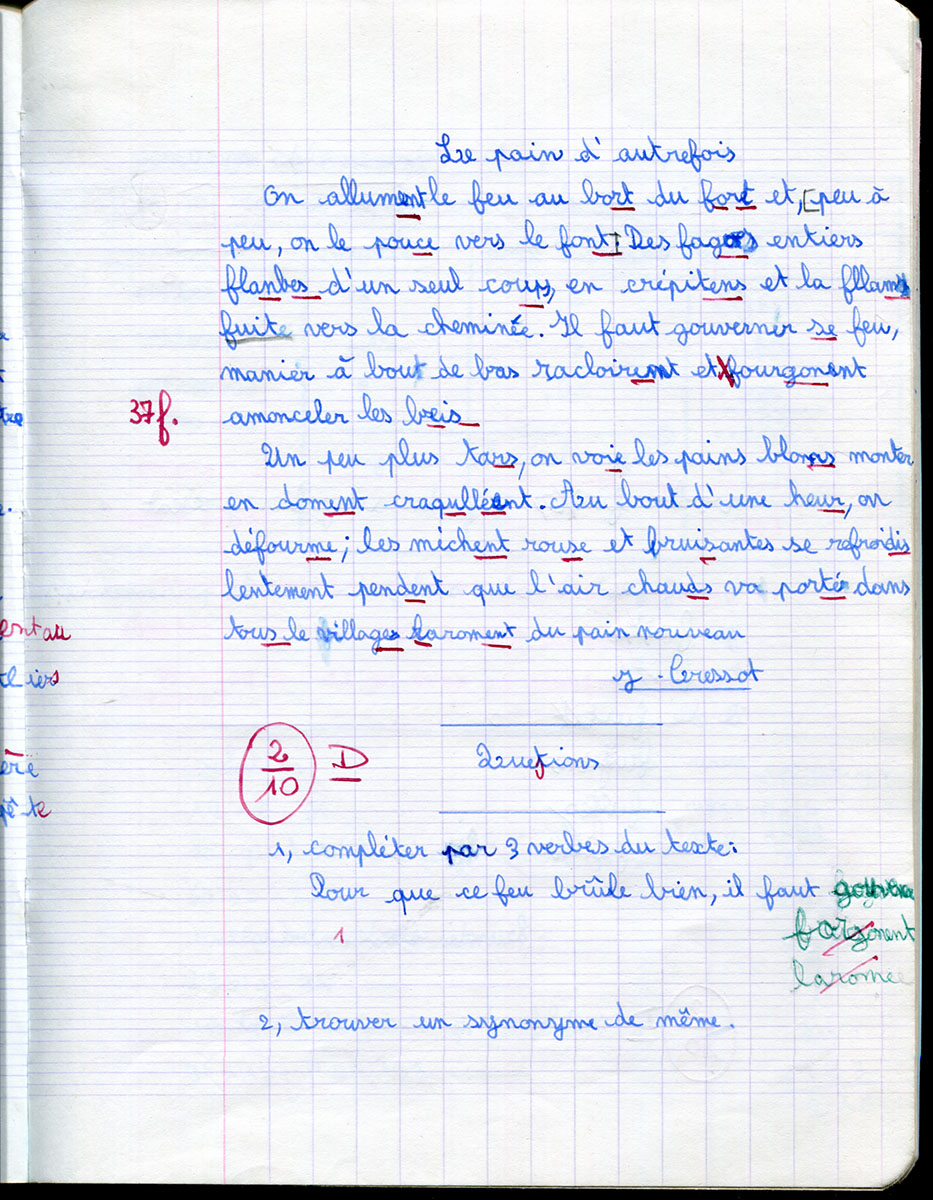 Le pain d'autrefois
On allument le feu au bort du fort et, [peu à
peu, on le pouce vers le font] Des fagots entiers
flanbes d'un seul coup, en crépitens et la fllams
fuite vers la cheminée. Il faut gouverner se feu,
manier à bout de bras racloiremnt et fourgonent
37f.
amonceler les breis
Un peu plus tars, on voie les pains bloms monter
en doment craqulléent. Au bout d'une heur, on
défourme; les michent rouse et bruisantes se refroidis
lentement pendent que l'air chauds va porté dans
tous le villages laroment du pain nouveau
y. Cressot
2/10 D
Quetions
1, compléter par 3 verbes du texte:
Pour que ce feu brûle bien, il faut
1
forgonent
larome
2, trouver un synonyme de même.
entau
iers
ère
te